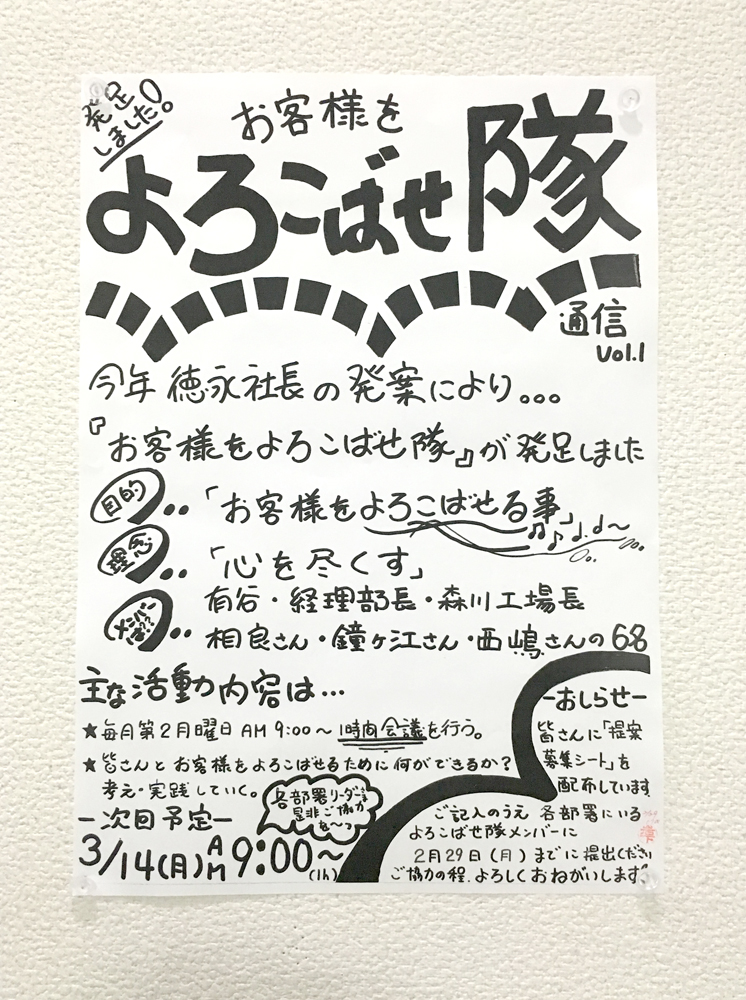 発足
しました!
お客様を
よろこばせ隊
通信
Vol.1
今年 徳永社長の発案により...
『お客様をよろこばせ隊』が発足しました
目的‥「お客様をよろこばせる事」
理念‥「心を尽くす」
メンバーは??‥有谷・経理部長・森川工場長
相良さん・鐘ヶ江さん・西嶋さんの6名
主な活動内容は…
★毎月第2月曜日 AM 9:00~ 1時間会議を行う。
★皆さんとお客様をよろこばせるために何ができるか?
考え・実践していく。
各部署リーダーさま
是非ご協力
を~っ
-次回予定-
3/14(月)AM9:00~
(1h)
-おしらせ-
皆さんに「提案
募集シート」を
配布しています
ご記入のうえ 各部署にいる
よろこばせ隊メンバーに
2月29日(月)までに提出ください
ご協力の程、よろしくおねがいします。